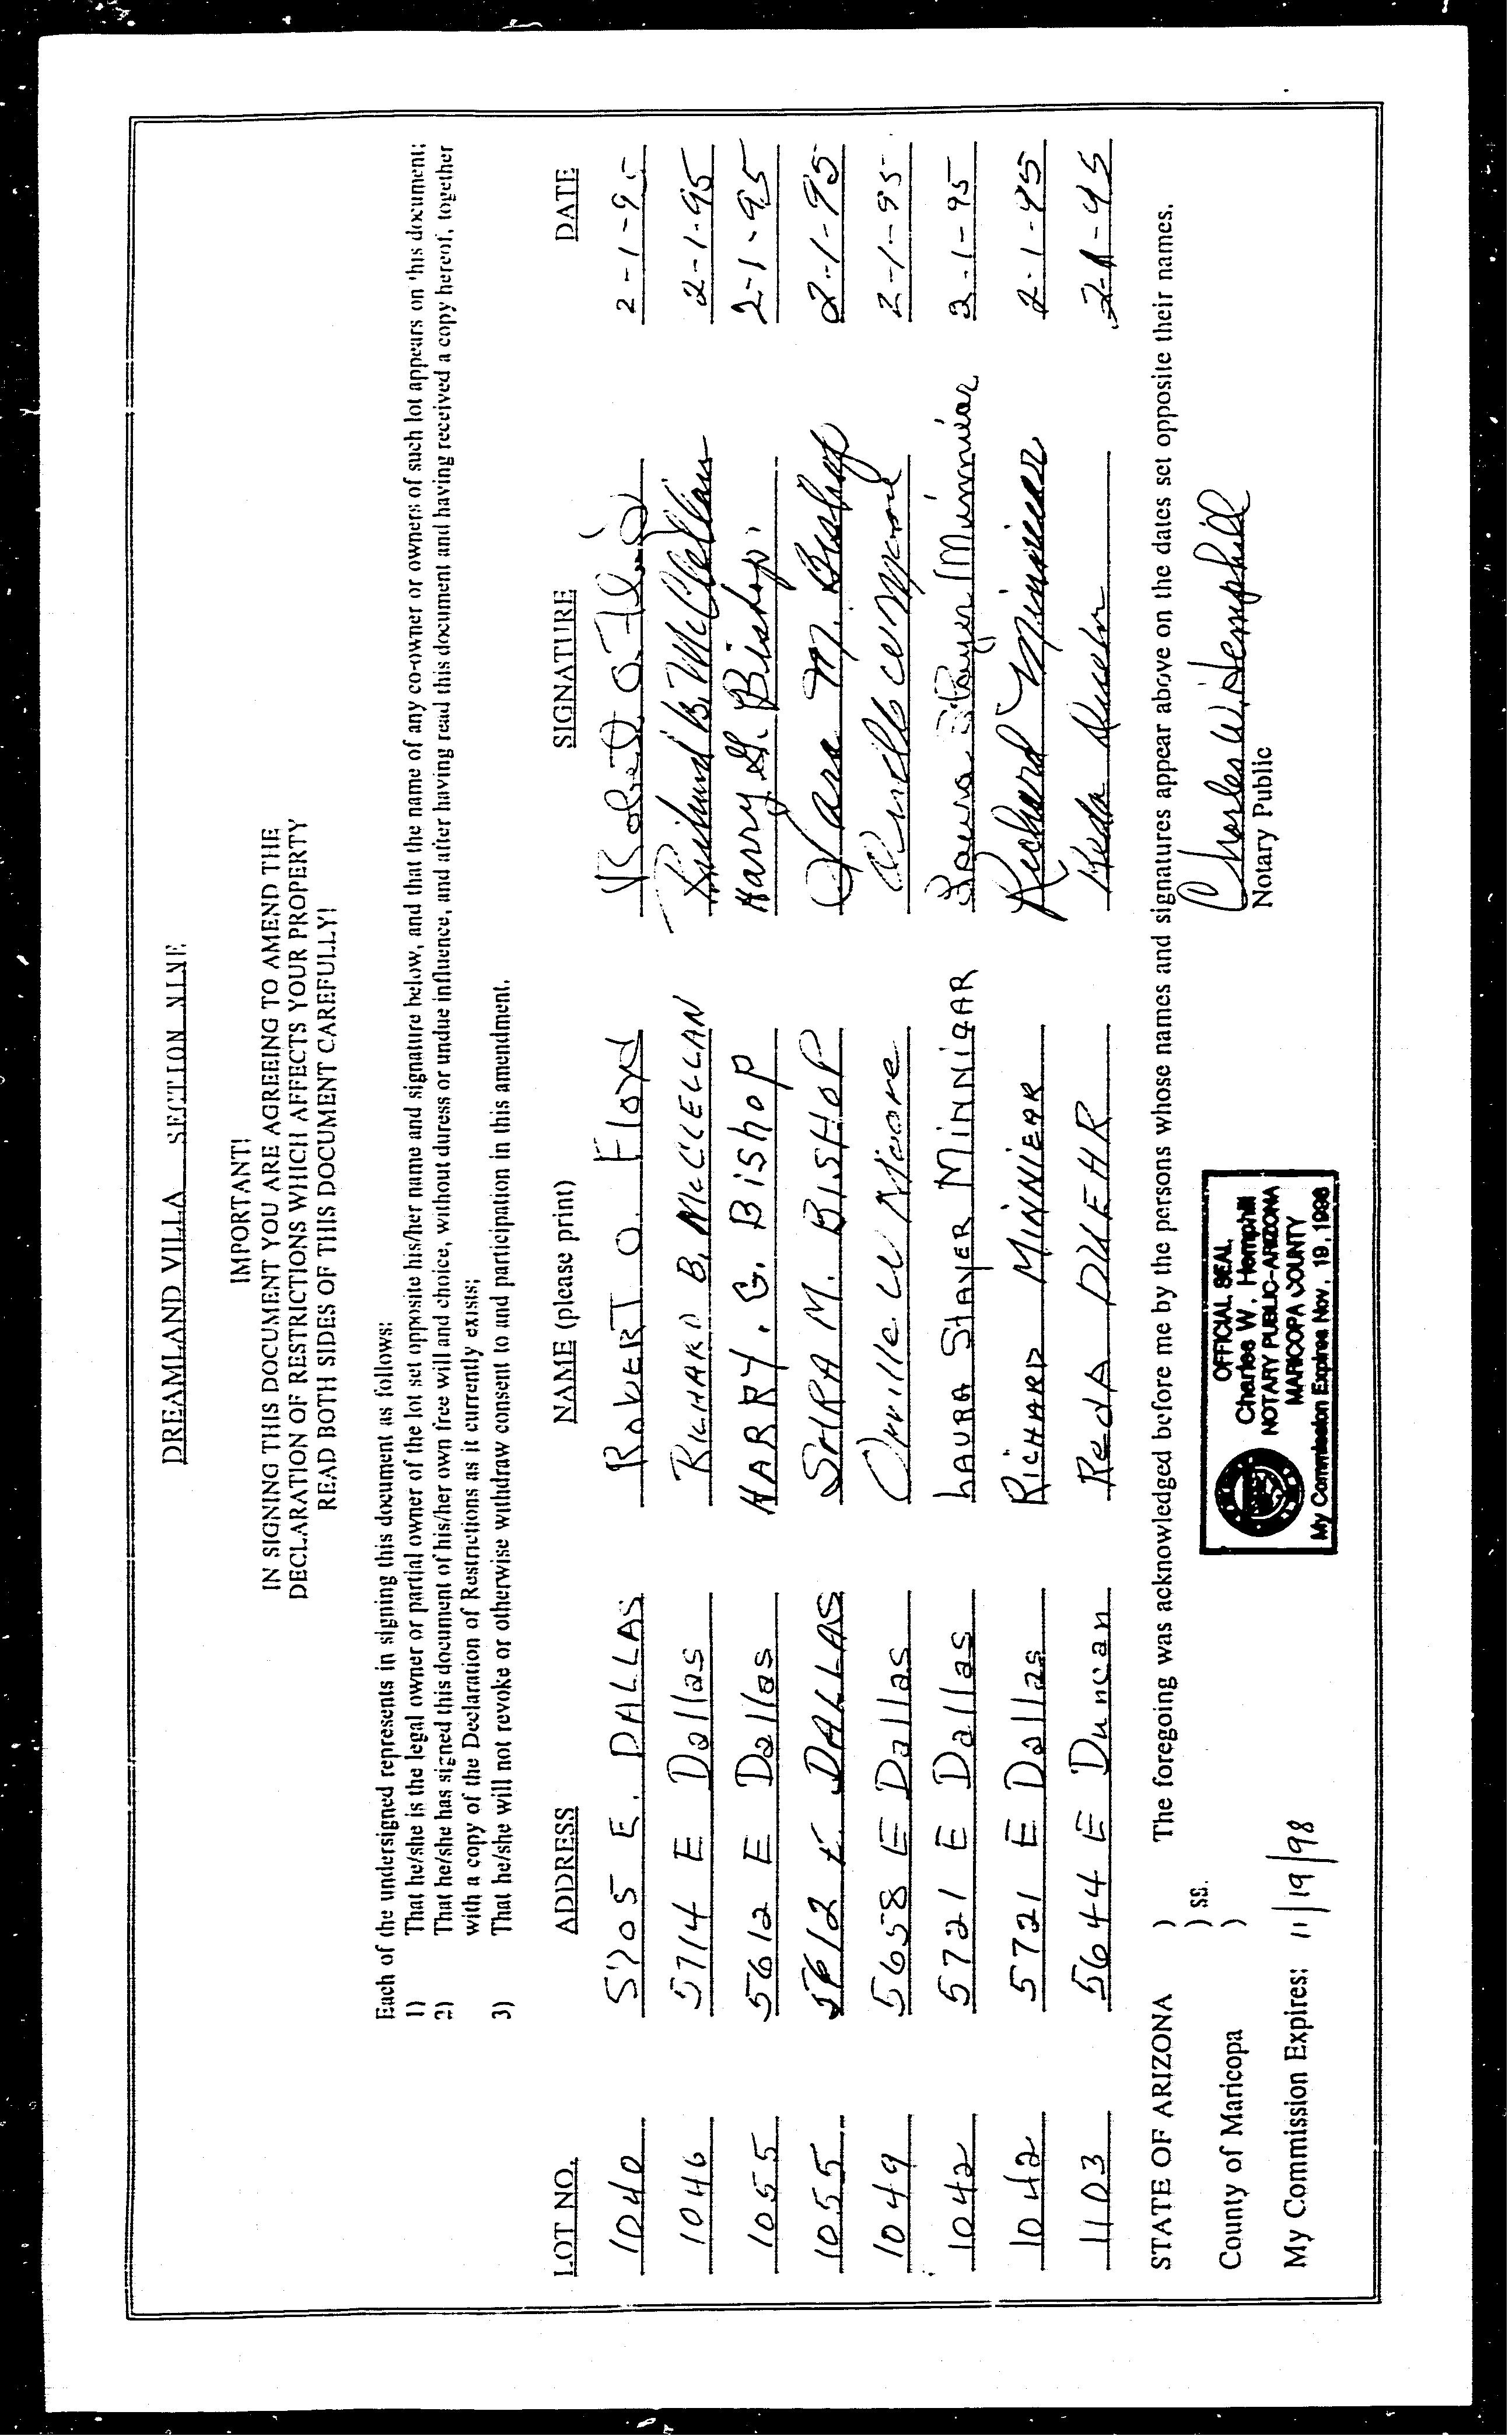 DREAMLAND VILLA SECTION NINE
IMPORTANT!
IN SIGNING THIS DOCUMENT YOU ARE AGREEING TO AMEND THE
DECLARATION OF RESTRICTIONS WHICH AFFECTS YOUR PROPERTY
READ BOTH SIDES OF THIS DOCUMENT CAREFULLY!
Each of the undersigned represents in signing this document as follows:
1) That he/she is the legal owner or partial owner of the lot set opposite his/her name and signature below, and that the name of any co-owner or owners of such lot appears on this document;
2) That he/she has signed this document of his/her own free will and choice, without duress or undue influence, and after having read this document and having received a copy hereof, together
with a copy of the Declaration of Restrictions as it currently exists;
3) That he/she will not revoke or otherwise withdraw consent to and participation in this amendment.
LOT NO. ADDRESS NAME (please print) SIGNATURE DATE
1040 5705 E. DALLAS ROBERT O. Floyd Robert O. Floyd 2-1-95
1046 5714 E Dallas RICHARD B. McCLELLAN Richard B. McClellan 2-1-95
1055 5612 E Dallas HARRY. G. Bishop Harry G. Bishop 2-1-95
1055 5612 E. DALLAS SARA M. BISHOP Sara M. Bishop 2-1-95
1049 5658 E Dallas Orville W Moore Orville W Moore 2-1-95
1042 5721 E Dallas LAURA STAYER MINNIEAR Laura Stayer Minniear 2-1-95
1042 5721 E Dallas RICHARD MINNIEAR Richard Minniear 2-1-95
1103 5644 E Duncan RedA DUEHR Reda Duehr 2-1-95
STATE OF ARIZONA ) The foregoing was acknowledged before me by the persons whose names and signatures appear above on the dates set opposite their names.
) ss.
County of Maricopa )
Charles W. Hemphill
Notary Public
My Commission Expires: 11/19/98
OFFICIAL SEAL
Charles W. Hemphill
NOTARY PUBLIC-ARIZONA
MARICOPA COUNTY
My Commission Expires Nov. 19, 1998